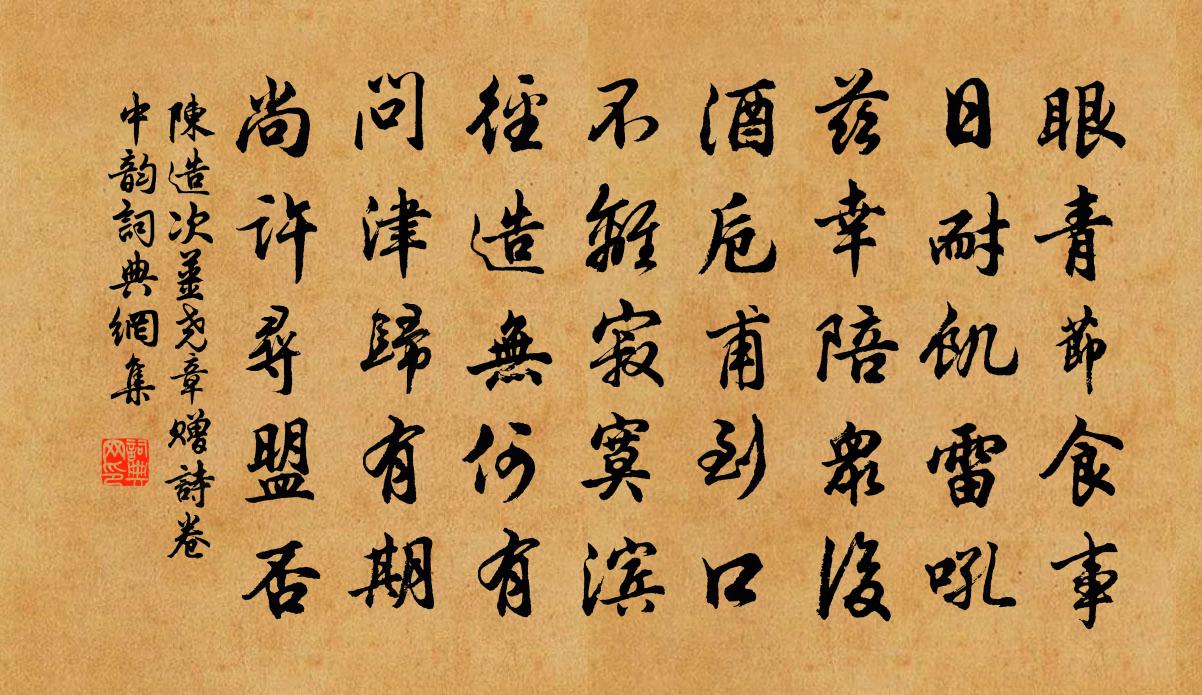 眼青節食事
日耐飢雷吼
茲幸陪衆後
酒卮甫到口
不離寂寞滨
徑造無何有
問津歸有期
尚許尋盟否
陳造次姜堯章赠詩卷
中韵詞典網集
詞典网印